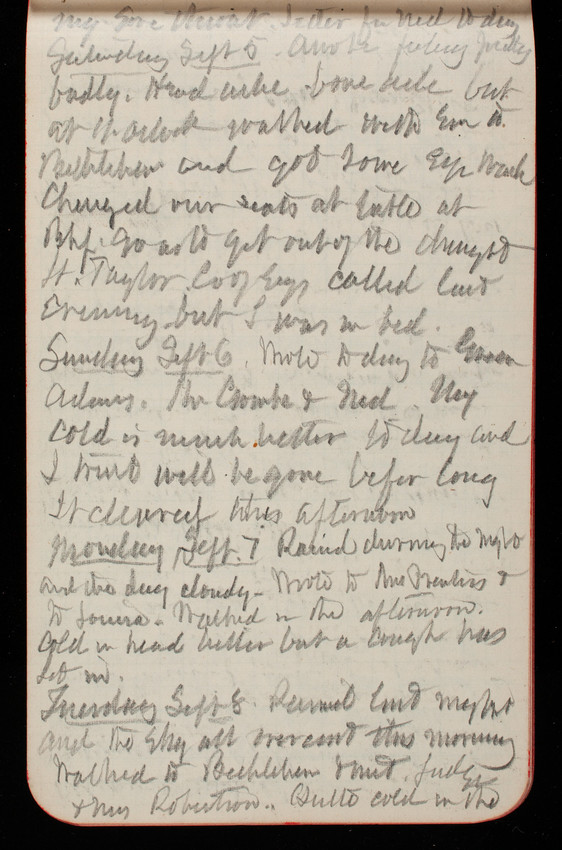 my sore throat. Letter for Ned to day
Saturday Sept 5. Awoke feeling pretty
badly. Head ache bone ache but
at 11 oclock walked with Em to
Bethlehem and got some
Changed our seats at table at
so as to get out of the draught
Lt. Taylor Co of Eng's called last
Evening but I was in bed.
Sunday Sept 6. Wrote to day to
Adams. Mr & Ned. My
cold is much better to day and
I trust will be gone before long
It cleared this afternoon
Monday Sept. 7 Raind during the night
and the day cloudy - Wrote to Mrs Prentiss &
to Louisa. Walked in the afternoon.
Cold in head better but a cough has
set in.
Tuesday Sept 8. Rained last night
and the sky all overcast this morning
Walked to Bethlehem & met Judge
& Mrs Robertson. Quite cold in the